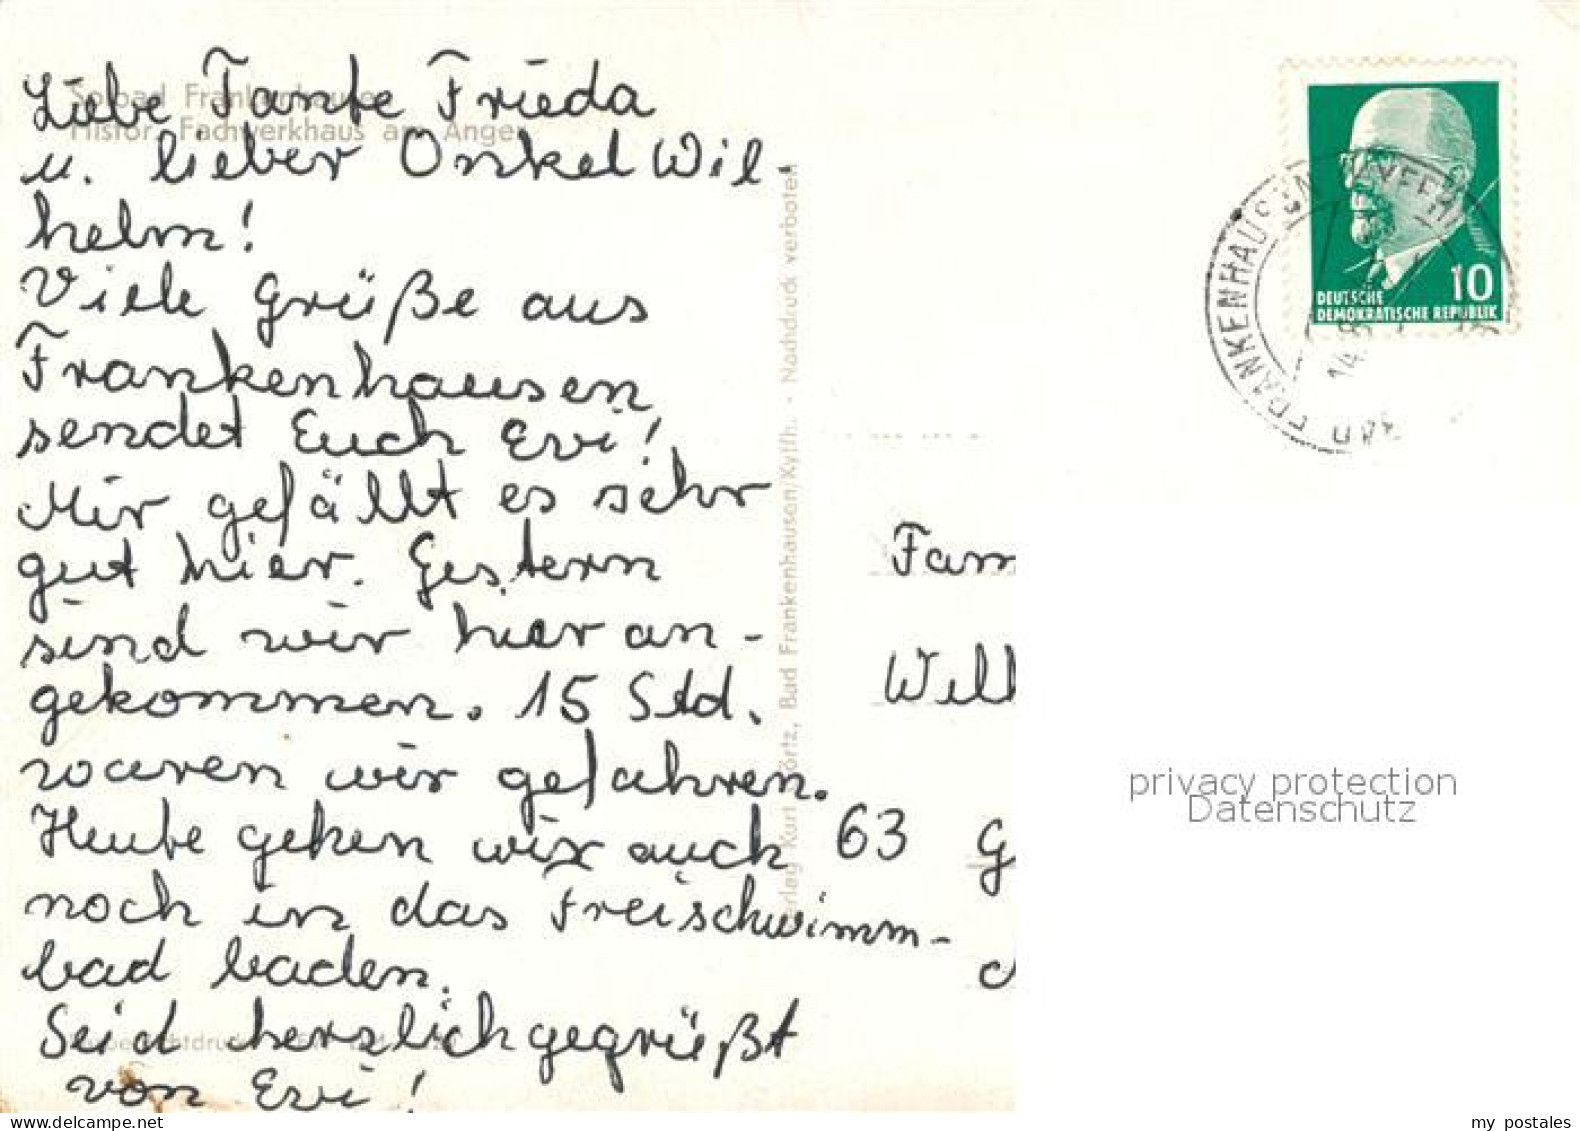 Solbad Frankenhausen
Histor. Fachwerkhaus am Anger
Liebe Tante Frieda
u. lieber Onkel Wil-
helm!
Viele Grüße aus
Frankenhausen
sendet Euch Evi!
Mir gefällt es sehr
gut hier. Gestern
sind wir hier an-
gekommen. 15 Std.
waren wir gefahren.
Heute gehen wir auch
noch in das Freischwimm-
bad baden.
Seid herzlich gegrüßt
von Evi!
Verlag Kurt Körtz, Bad Frankenhausen/Kyffh. • Nachdruck verboten
10
DEUTSCHE
DEMOKRATISCHE REPUBLIK
BAD FRANKENHAUSEN KYFFH
14.8
Fam
Wilh
63 G
privacy protection
Datenschutz
my postales